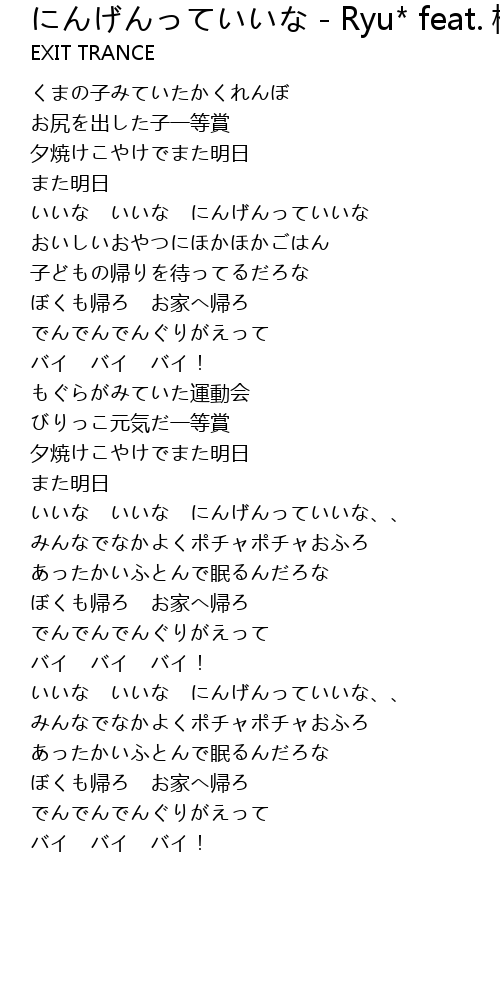 にんげんっていいな - Ryu* feat.
EXIT TRANCE
くまの子みていたかくれんぼ
お尻を出した子一等賞
夕焼けこやけでまた明日
また明日
いいな　いいな　にんげんっていいな
おいしいおやつにほかほかごはん
子どもの帰りを待ってるだろな
ぼくも帰ろ　お家へ帰ろ
でんでんでんぐりがえって
バイ　バイ　バイ！
もぐらがみていた運動会
びりっこ元気だ一等賞
夕焼けこやけでまた明日
また明日
いいな　いいな　にんげんっていいな、、
みんなでなかよくポチャポチャおふろ
あったかいふとんで眠るんだろな
ぼくも帰ろ　お家へ帰ろ
でんでんでんぐりがえって
バイ　バイ　バイ！
いいな　いいな　にんげんっていいな、、
みんなでなかよくポチャポチャおふろ
あったかいふとんで眠るんだろな
ぼくも帰ろ　お家へ帰ろ
でんでんでんぐりがえって
バイ　バイ　バイ！